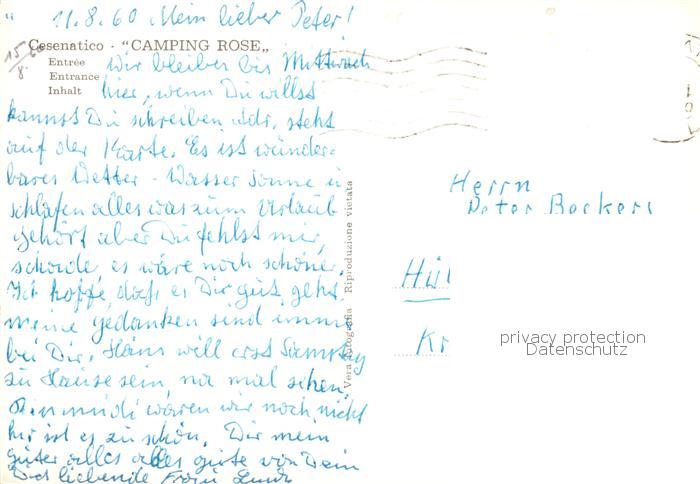 11.8.60 Mein lieber Peter!
Cesenatico - "CAMPING ROSE"
15/8.
Entrée
Entrance
Inhalt
wir bleiben bis Mittwoch
hier, wenn Du willst
kannst Du schreiben Adr. steht
auf der Karte. Es ist wunder-
bares Wetter - Wasser sonne u
schlafen alles was zum Urlaub
gehört aber Du fehlst mir,
schade, es wäre noch schöner.
Ich hoffe, daß es Dir gut geht.
meine Gedanken sind immer
bei Dir. Hans will erst Samstag
zu Hause sein, na mal sehen.
in waren wir noch nicht
hier ist es zu schön. Dir mein
guter alles alles gute von Dein
Dich liebende Frau
Vera fotografia Riproduzione vietata
Herrn
Peter Beckers
Hül
Kr
privacy protection
Datenschutz